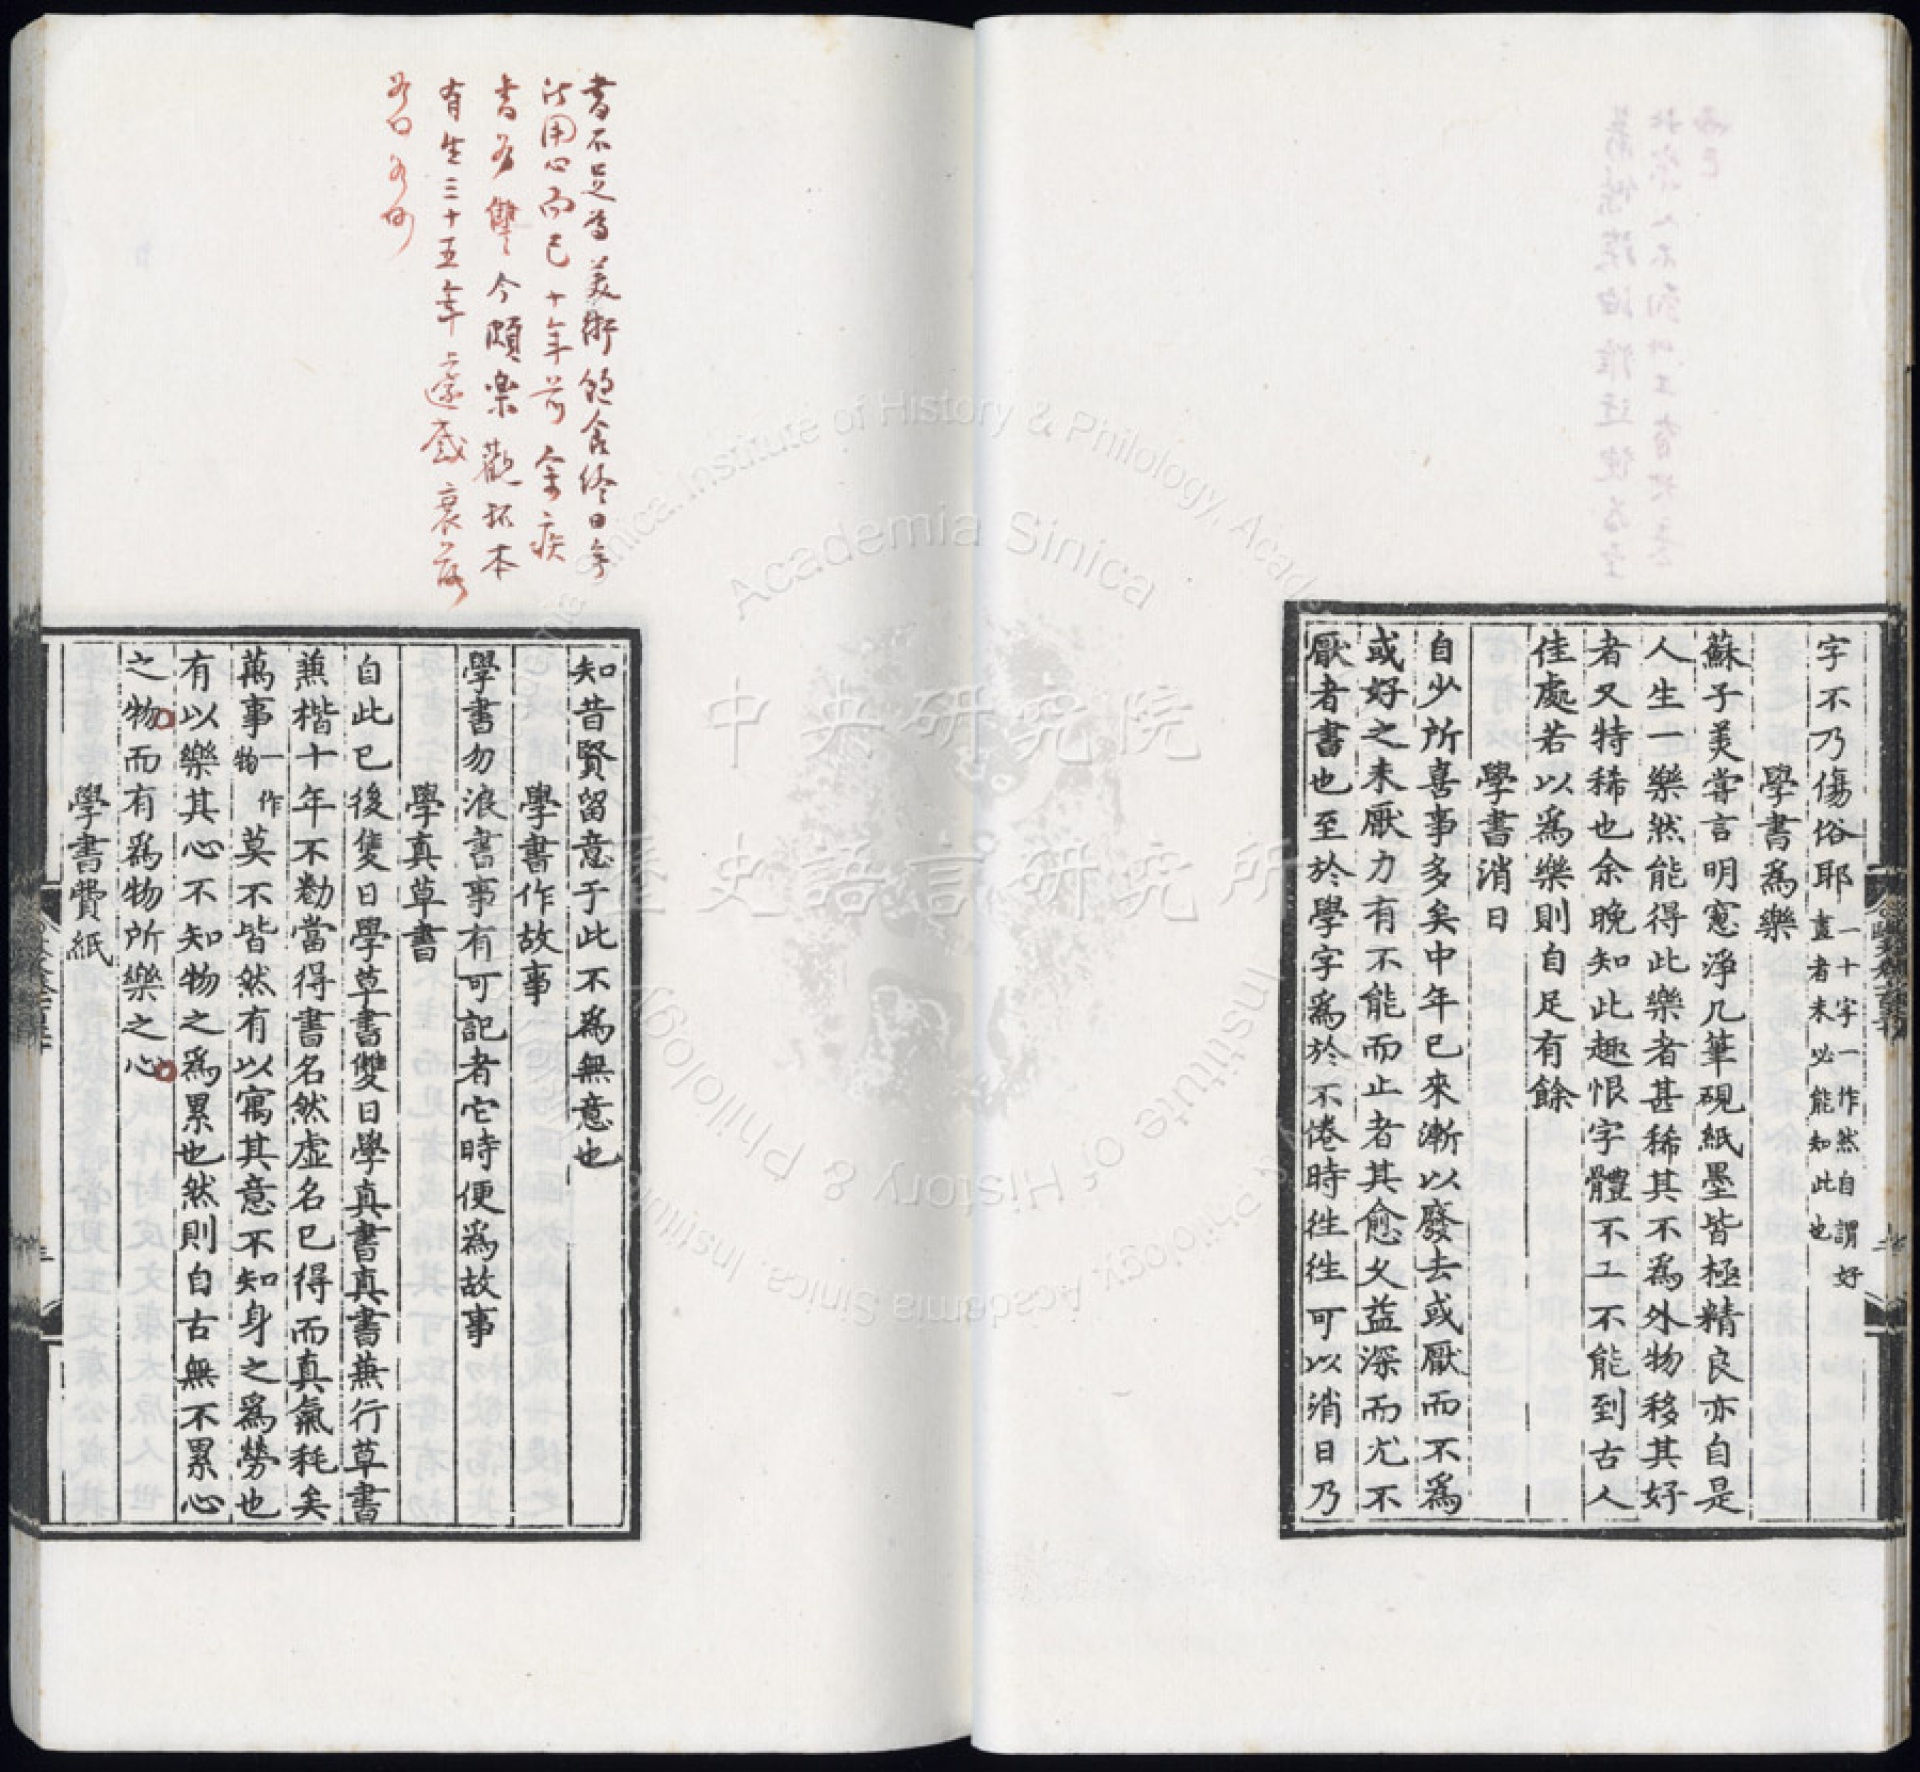 字不乃傷俗耶一十字一作然自謂好畫者未必能知此也
學書為樂
蘇子美嘗言明窻淨几筆硯紙墨皆極精良亦自是
人生一樂然能得此樂者甚稀其不為外物移其好
者又特稀也余晚知此趣恨字體不工不能到古人
佳處若以為樂則自足有餘
學書消日
自少所喜事多矣中年已來漸以廢去或厭而不為
或好之未厭力有不能而止者其愈久益深而尤不
厭者書也至於學字為於不倦時徃徃可以消日乃
書不足為美術
法用心而已十年前余疾
書為讐今頗樂觀拓本
有生三十五年
知昔賢留意于此不為無意也
學書作故事
學書勿浪書事有可記者它時便為故事
學真草書
自此已後隻日學草書雙日學真書真書蕪行草書
蕪楷十年不勌當得書名然虛名已得而真氣耗矣
萬事一作物莫不皆然有以寓其意不知身之為勞也
有以樂其心不知物之為累也然則自古無不累心
之物而有為物所樂之心
學書費紙
中央研究院
歷史語言研究所
Academia Sinica
Institute of History & Philology, Academia Sinica